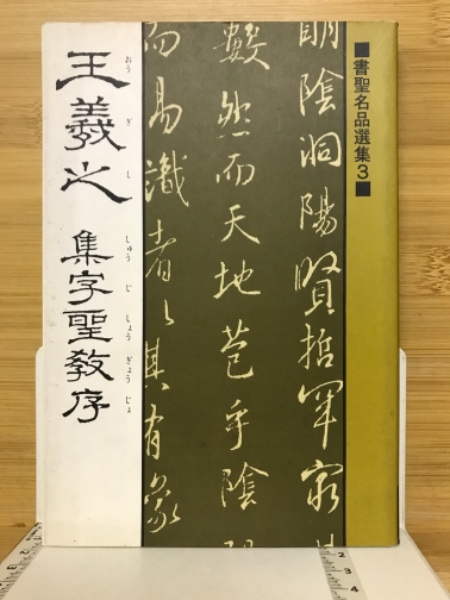 ■書聖名品選集3■
明陰洞陽賢哲罕窮其
數然而天地苞乎陰陽
而易識者以其有象
おう ぎ し しゅう じ しょう ぎょう じょ
王羲之 集字聖教序
2 3 4